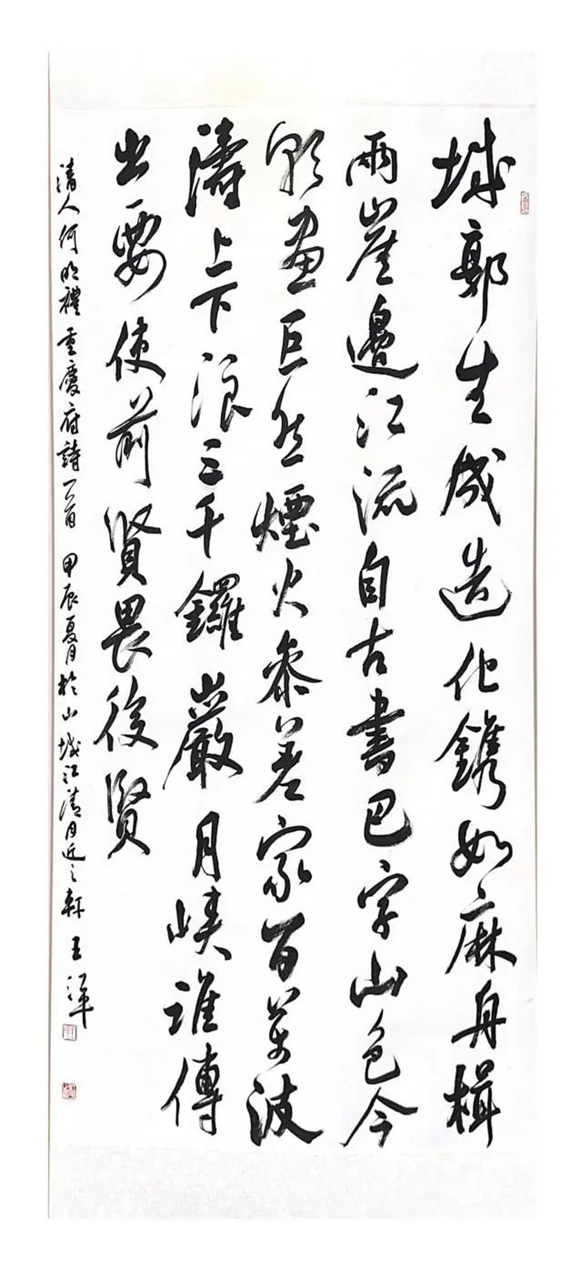 城郭生成造化镌如麻舟楫
兩崖邊江流自古書巴字山色今
朝畫巨然煙火參差家百萬波
濤上下浪三千鑼巖月峽誰傳
出要使前賢畏後賢
清人何明禮重慶府詩一首 甲辰夏月於山城江清月近之軒 王渾